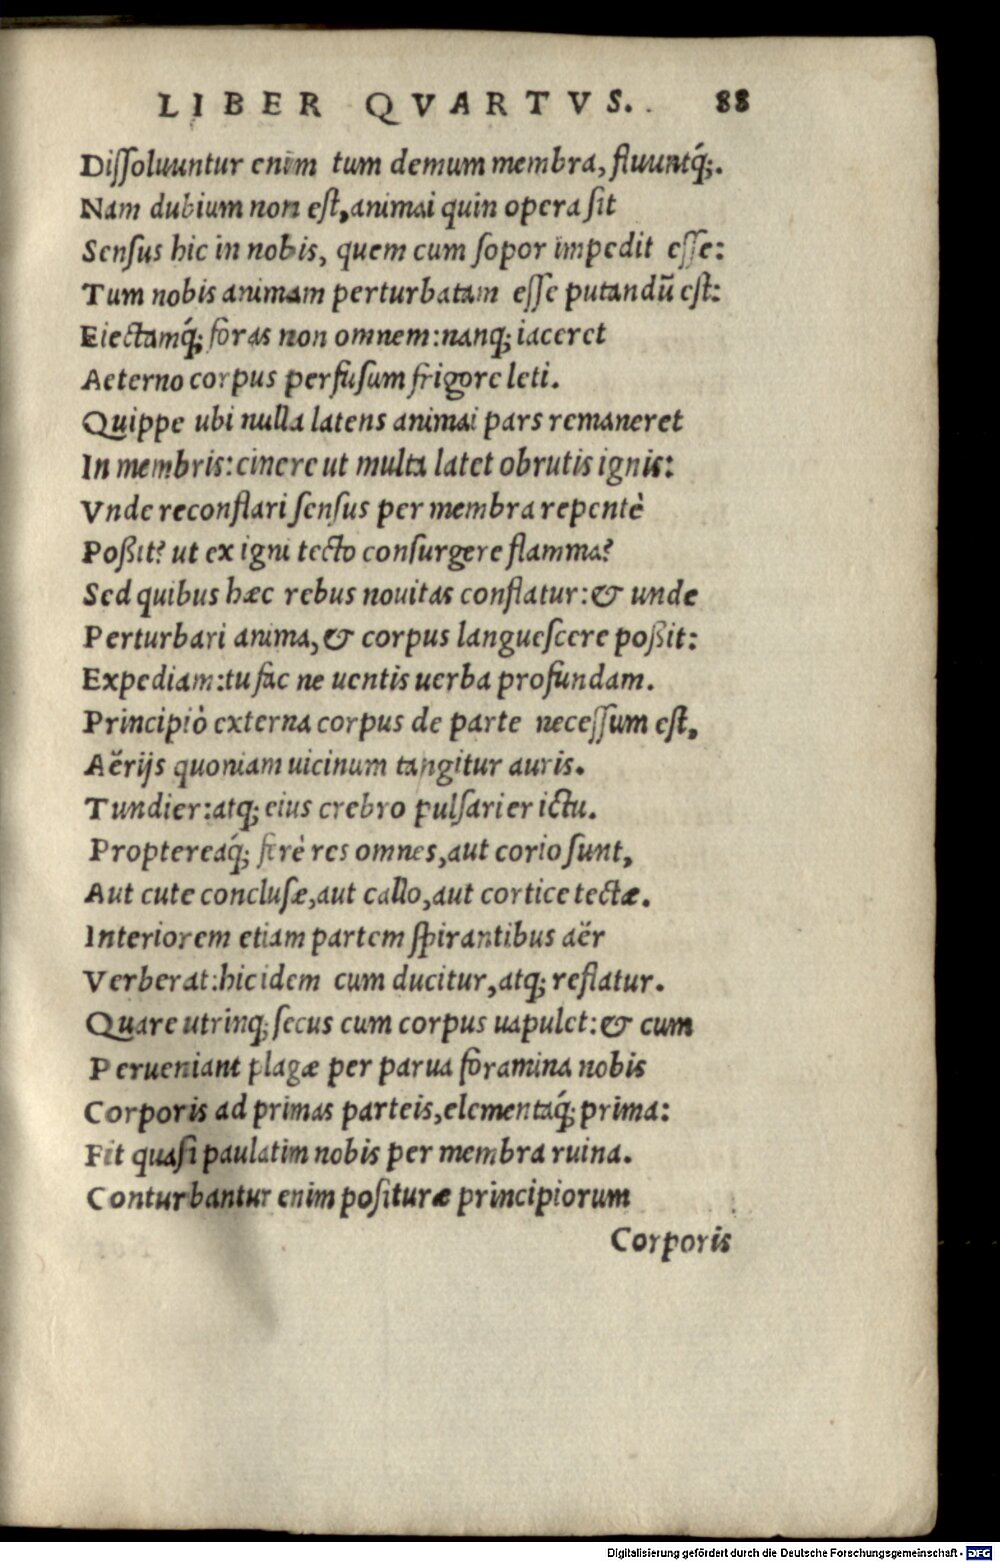 LIBER QVARTVS. 88
Dissoluuntur enim tum demum membra, fluuntq́;.
Nam dubium non est, animai quin opera sit
Sensus hic in nobis, quem cum sopor impedit esse:
Tum nobis animam perturbatam esse putandū est:
Eiectamq́; foras non omnem: nanq; iaceret
Aeterno corpus perfusum frigore leti.
Quippe ubi nulla latens animai pars remaneret
In membris: cinere ut multa latet obrutis ignis:
Vnde reconflari sensus per membra repentè
Poßit? ut ex igni tecto consurgere flamma?
Sed quibus hæc rebus nouitas conflatur: & unde
Perturbari anima, & corpus languescere poßit:
Expediam: tu fac ne uentis uerba profundam.
Principiò externa corpus de parte necessum est,
Aërijs quoniam uicinum tangitur auris.
Tundier: atq; eius crebro pulsarier ictu.
Proptereaq́; ferè res omnes, aut corio sunt,
Aut cute conclusæ, aut callo, aut cortice tectæ.
Interiorem etiam partem spirantibus aër
Verberat: hic idem cum ducitur, atq; reflatur.
Quare utrinq; secus cum corpus uapulet: & cum
Perueniant plagæ per parua foramina nobis
Corporis ad primas parteis, elementaq́; prima:
Fit quasi paulatim nobis per membra ruina.
Conturbantur enim posituræ principiorum
Corporis
Digitalisierung gefördert durch die Deutsche Forschungsgemeinschaft - DFG